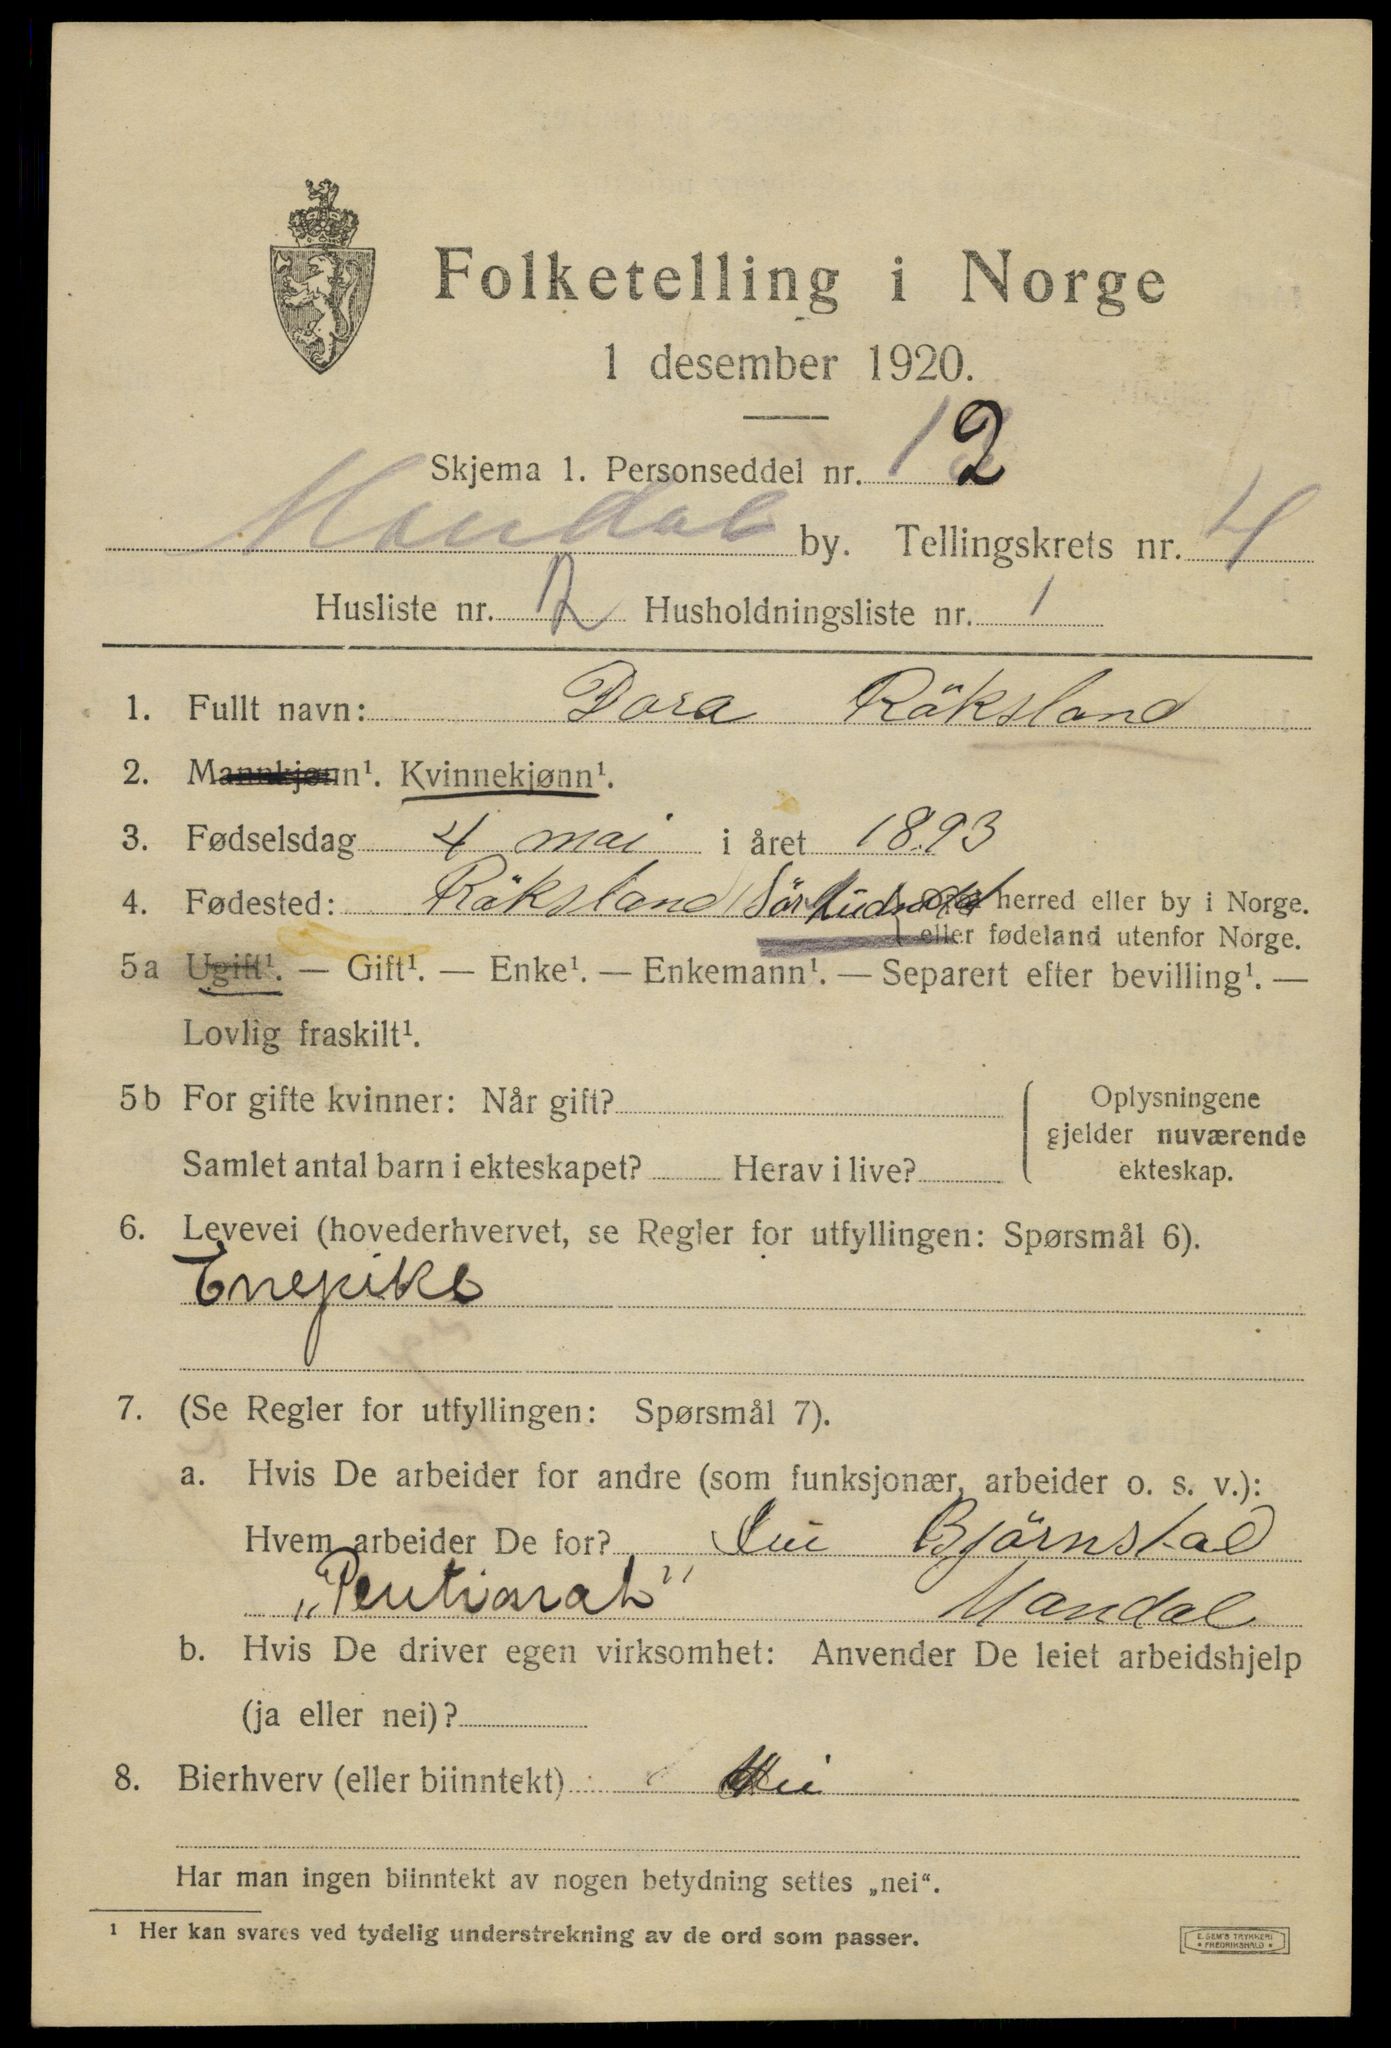 Folketelling i Norge
1 desember 1920.
Skjema 1. Personseddel nr. 2
Mandal by. Tellingskrets nr. 4
Husliste nr. 12 Husholdningsliste nr. 1
1. Fullt navn: Dora Röksland
2. Mannkjønn¹. Kvinnekjønn¹.
3. Fødselsdag 4 mai i året 1893
4. Fødested: Röksland Sör Audnedal herred eller by i Norge.
eller fødeland utenfor Norge.
5a Ugift¹. — Gift¹. — Enke¹. — Enkemann¹. — Separert efter bevilling¹. —
Lovlig fraskilt¹.
5b For gifte kvinner: Når gift? Oplysningene
gjelder nuværende
Samlet antal barn i ekteskapet? Herav i live? ekteskap.
6. Levevei (hovederhvervet, se Regler for utfyllingen: Spørsmål 6).
Enepike
7. (Se Regler for utfyllingen: Spørsmål 7).
a. Hvis De arbeider for andre (som funksjonær, arbeider o. s. v.):
Hvem arbeider De for? Björnstad
Mandal
b. Hvis De driver egen virksomhet: Anvender De leiet arbeidshjelp
(ja eller nei)?
8. Bierhverv (eller biinntekt) Nei
Har man ingen biinntekt av nogen betydning settes „nei“.
¹ Her kan svares ved tydelig understrekning av de ord som passer.
E. SEM'S TRYKKERI
• FREDRIKSHALD •